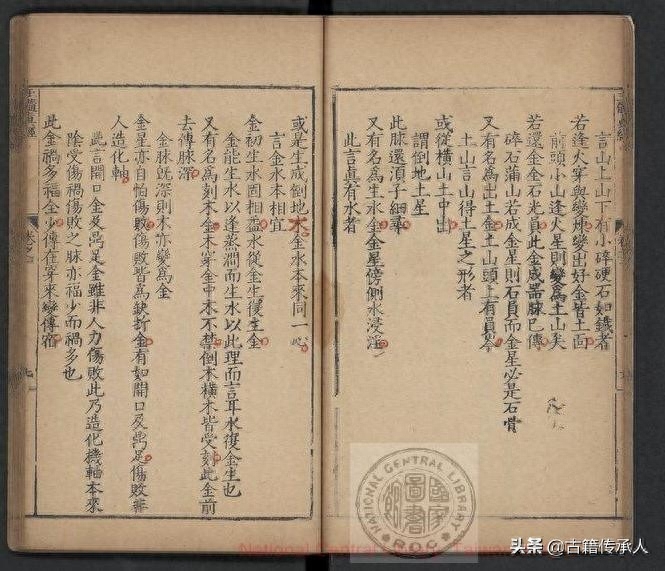 言山上山下有小碎硬石如鐵者
若逢火穿與變煉變出好金皆土面
前頭小山逢火星則變為土山矣
若還金全石光員此金成器脉已傳
碎石蒲山若成金星則石員而金星必是石骨
又有名為出土金土山頭上有員
土山言山得土星之形者
或從橫山土中出
謂倒地土星
此脉還湏子細尋
又有名為生水金金星傍側水浸淫
此言眞有水者
或是生成倒地木金水本來同一心
言金水本相宜
金初生水固相益水從金生復生金
金能生水以逢蒸潤而生水以此理而言耳水復金生也
又有名為刻木金木穿金中木不禁倒木橫木皆受刻此金前
去傳脉深
金脉既深則木亦變為金
金星亦自怕傷敗傷敗皆為缺折金有如開口及鬲足傷敗非
人造化軸
此言開口金及鬲足金雖非人力傷敗此乃造化機軸本來
陰受傷禍傷敗之脉亦福少而禍多也
此金禍多福全少傳在穿來變傳宿
NATIONAL CENTRAL LIBRARY
R.O.C
國家圖書館
National Central Library
头条 @古籍传承人